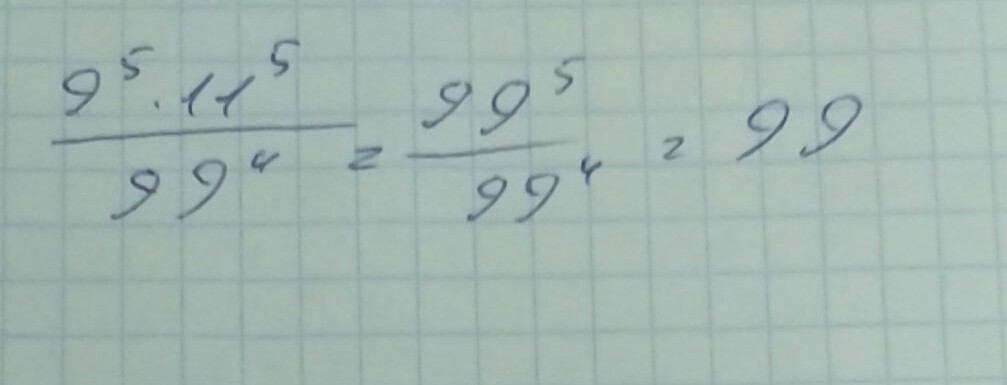 9⁵·11⁵/99⁴ = 99⁵/99⁴ = 99